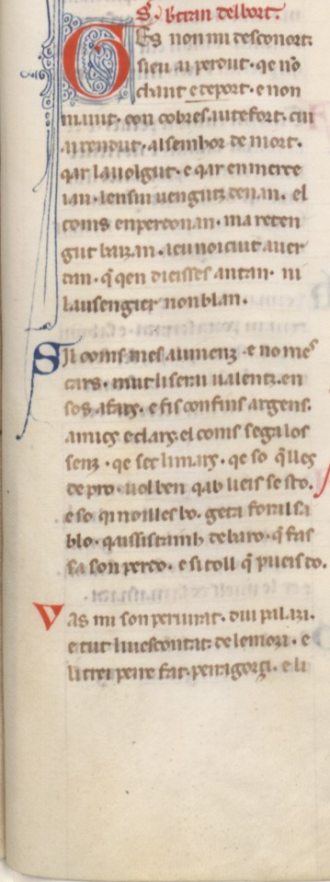 S. Bertran delbort.
Ges non mi desconort.
sieu ai perdut. qe no
chant e deport. e non
maiut. con cobres autefort. cui
ai rendut. al senhor de mort.
qar la uolgut. e qar en merce
ian. lensui uengutz denan. el
coms en perdonan. ma reten
gut baizan. ieu noi ciut auer
dan. q qen dieisses antan. ni
lausengier non blan.
Sil coms mes auinenz. e no mes
cars. mout li serai ualentz. en
sos afars. e fis con fins argens.
amics e clars. el coms sega los
senz. qe sec la mars. qe so q lles
de pro. uol ben qab lieis se sto.
e so qi noilles bo. geta fors el sa
blo. qaissi stainh de baro. q fas
sa son perdo. e si toll q pueis do.
Vas mi son periurat. dui palazi.
e tut li uescontat. de lemozi. e
li trei penre fat. peiragorzi. e li